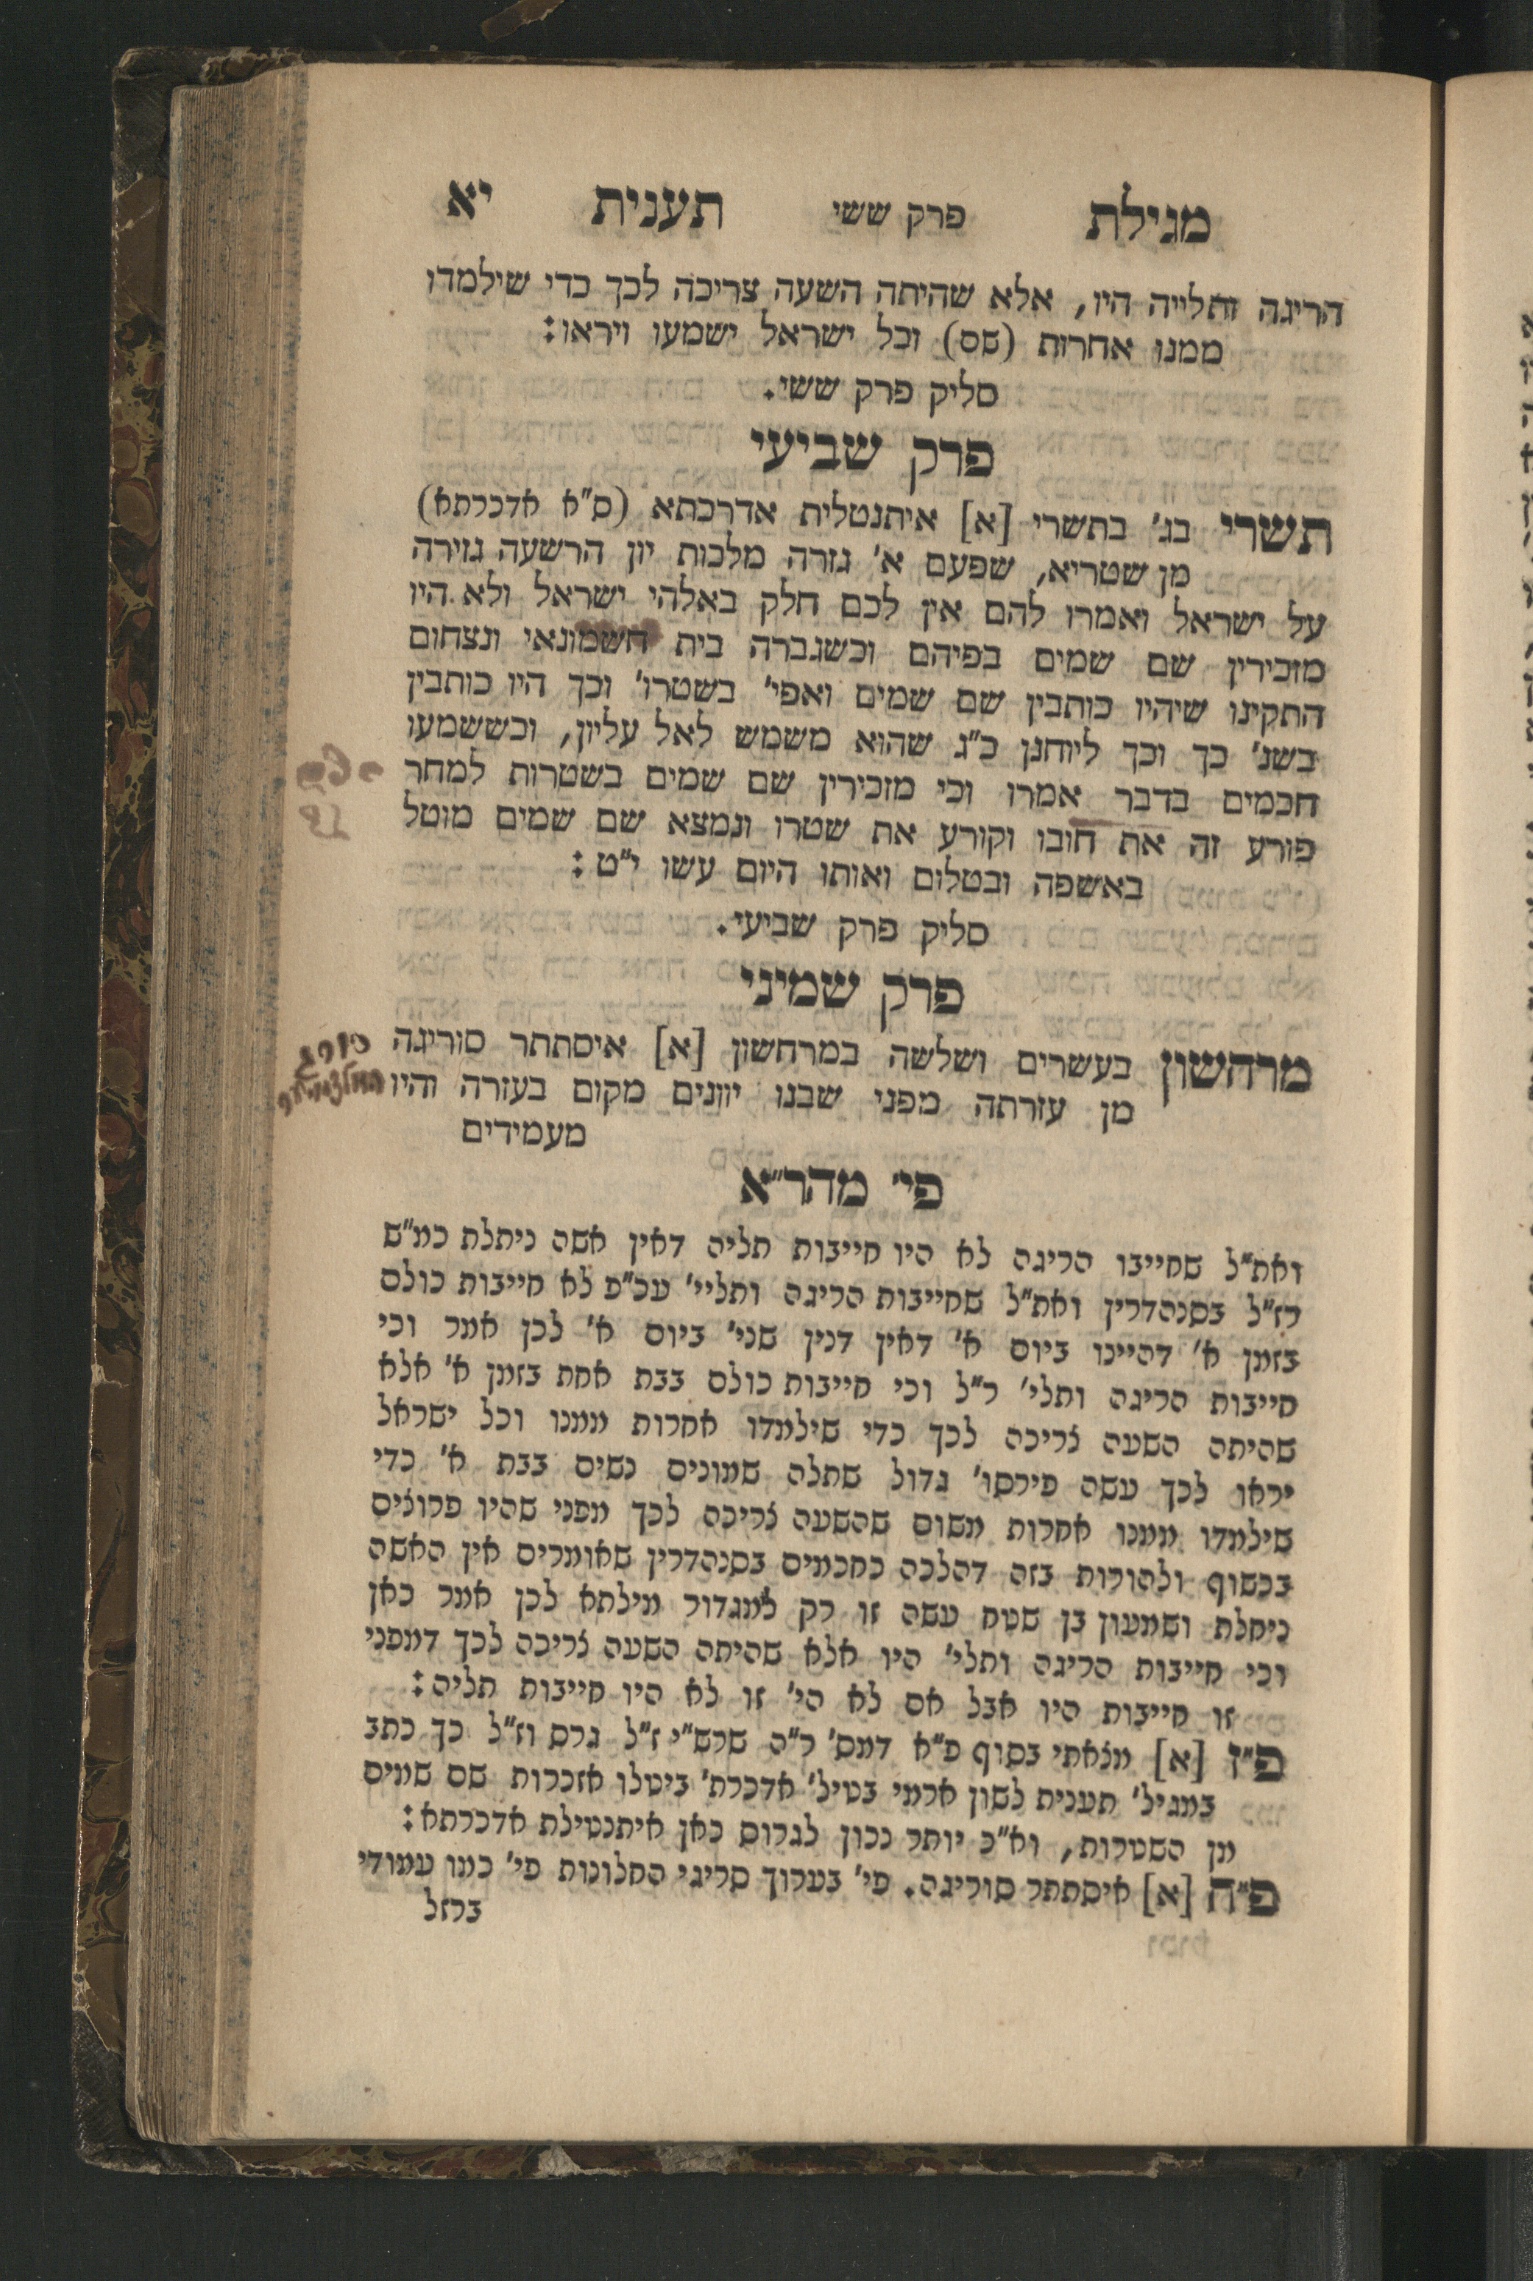 מגילת פרק ששי תענית יא
הריגה ותלייה היו, אלא שהיתה השעה צריכה לכך כדי שילמדו
ממנו אחרות (שם) וכל ישראל ישמעו ויראו:
סליק פרק ששי.
פרק שביעי
תשרי בג' בתשרי [א] איתנטלית אדרכתא (ס"א אדכרתא)
מן שטריא, שפעם א' גזרה מלכות יון הרשעה גזירה
על ישראל ואמרו להם אין לכם חלק באלהי ישראל ולא היו
מזכירין שם שמים בפיהם וכשגברה בית חשמונאי ונצחום
התקינו שיהיו כותבין שם שמים ואפי' בשטרו' וכך היו כותבין
בשנ' כך וכך ליוחנן כ"ג שהוא משמש לאל עליון, וכששמעו
חכמים בדבר אמרו וכי מזכירין שם שמים בשטרות למחר
פורע זה את חובו וקורע את שטרו ונמצא שם שמים מוטל
באשפה ובטלום ואותו היום עשו י"ט:
סליק פרק שביעי.
פרק שמיני
מרחשון בעשרים ושלשה במרחשון [א] איסתתר סוריגה
מן עזרתה מפני שבנו יוונים מקום בעזרה והיו
מעמידים
פי' מהר"א
ואת"ל שחייבו הריגה לא היו חייבות תליה דאין אשה ניתלת כמ"ש
רז"ל בסנהדרין ואת"ל שחייבות הריגה ותליי' עכ"פ לא חייבות כולם
בזמן א' דהיינו ביום א' דאין דנין שני' ביום א' לכן אמר וכי
חייבות הריגה ותלי' ר"ל וכי חייבות כולם בבת אחת בזמן א' אלא
שהיתה השעה צריכה לכך כדי שילמדו אחרות ממנו וכל ישראל
יראו לכך עשה פירסו' גדול שתלה שמונים נשים בבת א' כדי
שילמדו ממנו אחרות משום שהשעה צריכה לכך מפני שהיו פרוצים
בכשוף ולהורות בזה דהלכה כחכמים בסנהדרין שאומרים אין האשה
ניתלת ושמעון בן שטח עשה זו רק למגדור מילתא לכן אמר כאן
וכי חייבות הריגה ותלי' היו אלא שהיתה השעה צריכה לכך דמפני
זו חייבות היו אבל אם לא הי' זו לא היו חייבות תליה:
פ"ז [א] מצאתי בסוף פ"א דמס' ר"ה שרש"י ז"ל גרס וז"ל כך כתב
במגיל' תענית לשון ארמי בטיל' אדכרת' ביטלו אזכרות שם שמים
מן השטרות, וא"כ יותר נכון לגרוס כאן איתנטילת אדכרתא:
פ"ח [א] איסתתר סוריגה. פי' בערוך סריגי החלונות פי' כמו עמודי
ברזל